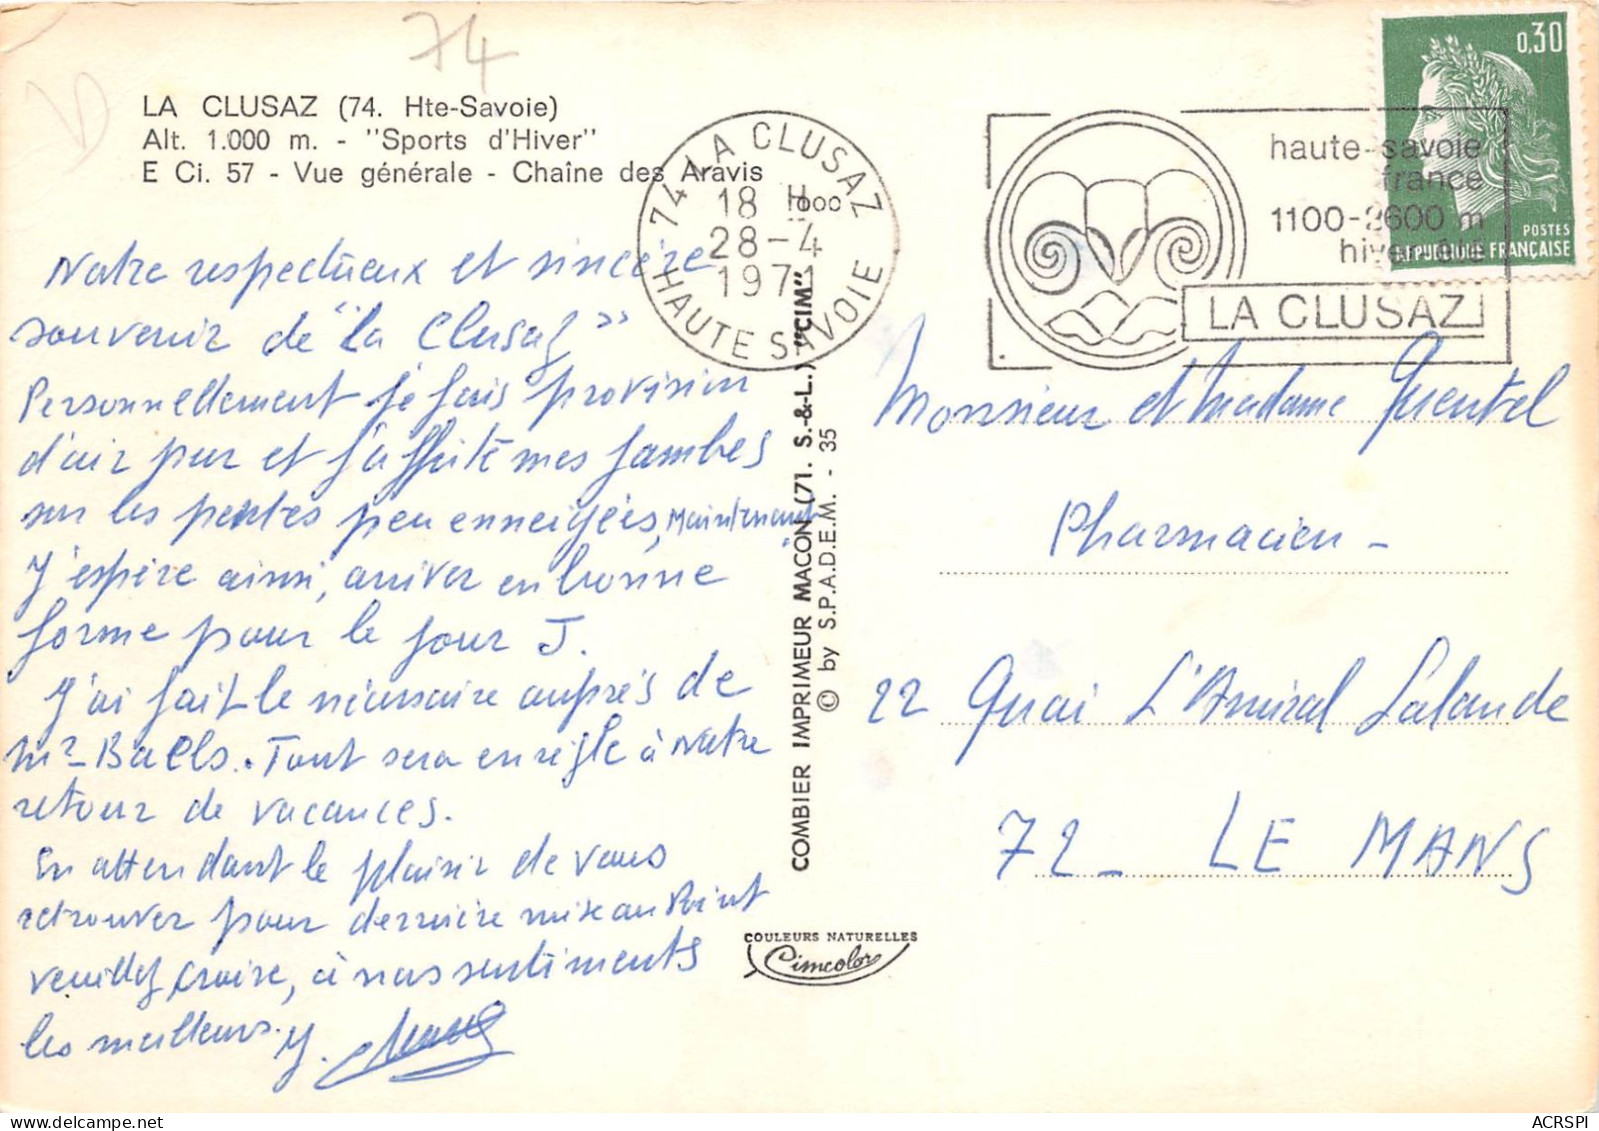 74
LA CLUSAZ (74. Hte-Savoie)
Alt. 1.000 m. - "Sports d'Hiver"
E Ci. 57 - Vue générale - Chaîne des Aravis
Notre respectueux et sincère
souvenir de "la Clusaz"
Personnellement je fais provision
d'air pur et j'affute mes jambes
sur les pentes peu enneigées, maintenant.
J'espère ainsi, arriver en bonne
forme pour le jour J.
J'ai fait le nécessaire auprès de
Mr Baels. Tout sera en règle à notre
retour de vacances.
En attendant le plaisir de vous
retrouver pour dernière mise au Point
veuillez croire, à nos sentiments
les meilleurs.
74 LA CLUSAZ
18 H00
28-4
1971
HAUTE SAVOIE
haute-savoie
france
1100-2600 m
hiver-été
LA CLUSAZ
0,30
POSTES
REPUBLIQUE FRANÇAISE
COMBIER IMPRIMEUR MACON (71. S.-&-L.) "CIM"
© by S.P.A.D.E.M. - 35
Monsieur et Madame Quentel
Pharmacien -
22 Quai L'Amiral Lalande
72 - LE MANS
COULEURS NATURELLES
Cimcolor
ACRSPI